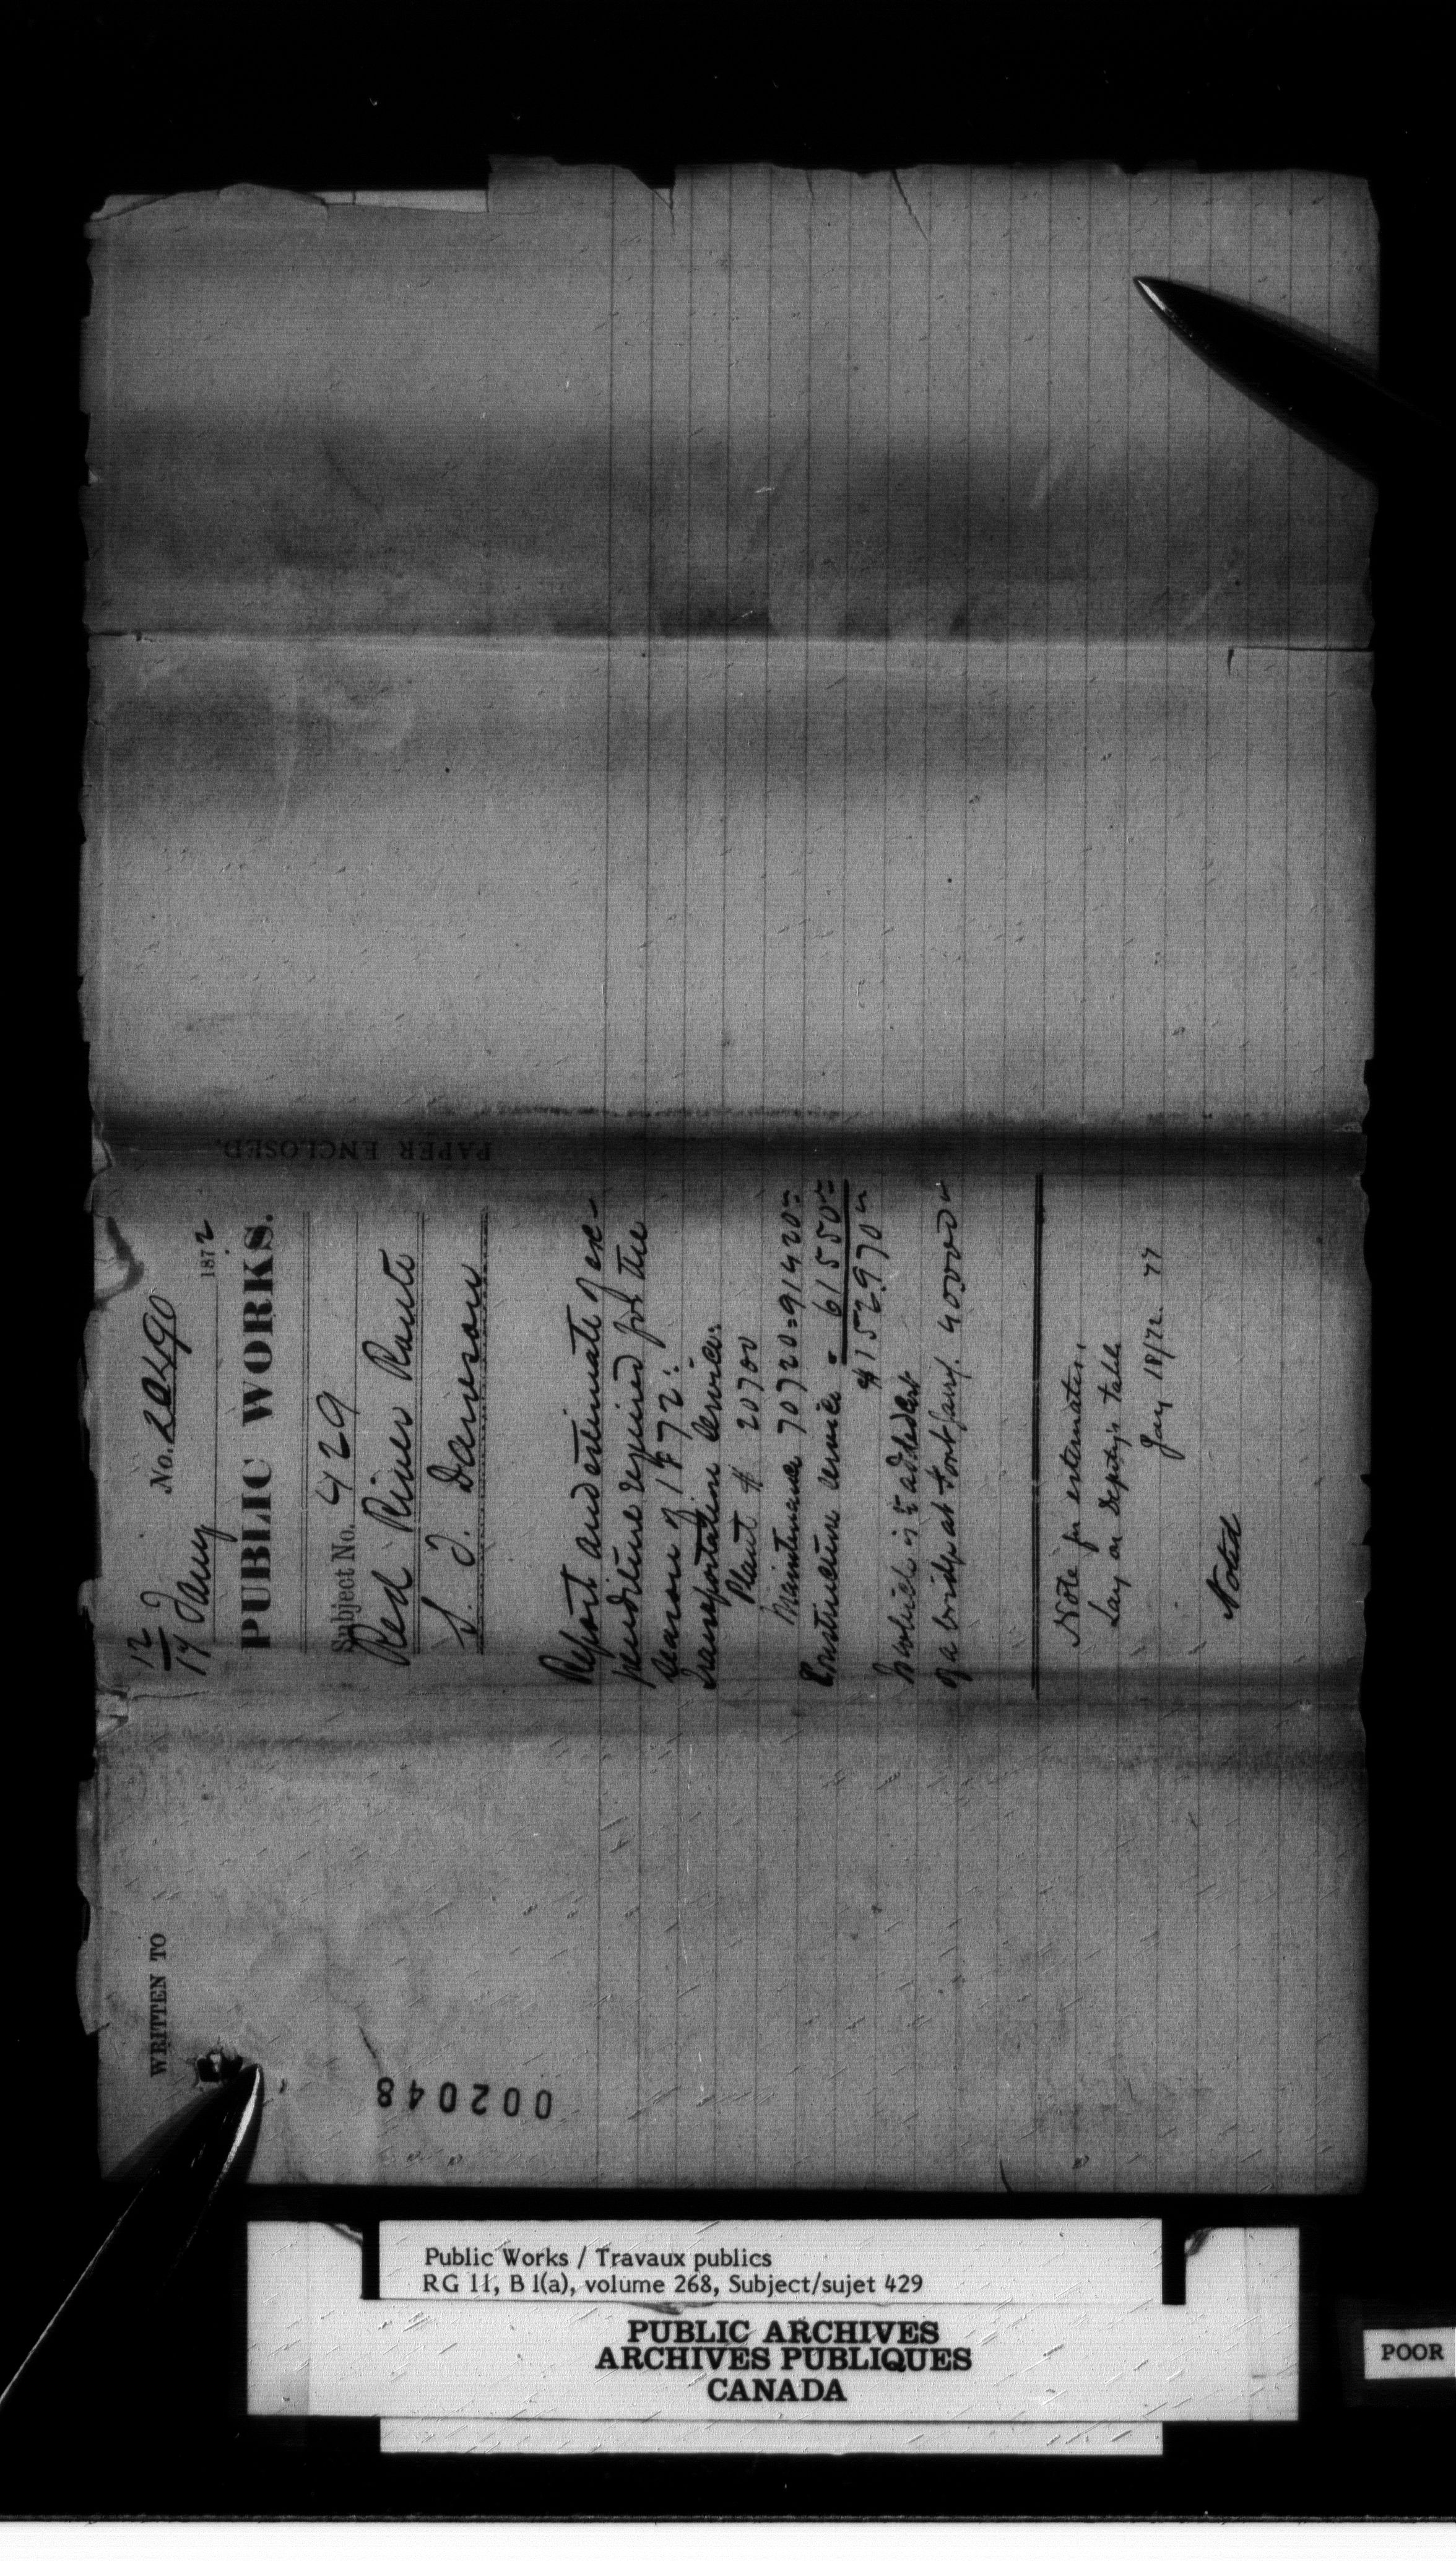 12/17 Jany 1872
No. 20490
PUBLIC WORKS.
Subject No. 429
Red River Route
S. J. Dawson
Report and estimate of ex-
penditure required for the
Season of 1872:
Transportation Service:
Plant $ 20700
Maintenance 70720 = 91420
Construction service = 61550
$152970
to which is to be added cost
of a bridge at Fort Garry. 40000
Note for estimates,
Lay on Deputy's table
Jany 18/72.
Noted
PAPER ENCLOSED.
WRITTEN TO
002048
Public Works / Travaux publics
RG 11, B 1(a), volume 268, Subject/sujet 429
PUBLIC ARCHIVES
ARCHIVES PUBLIQUES
CANADA
POOR